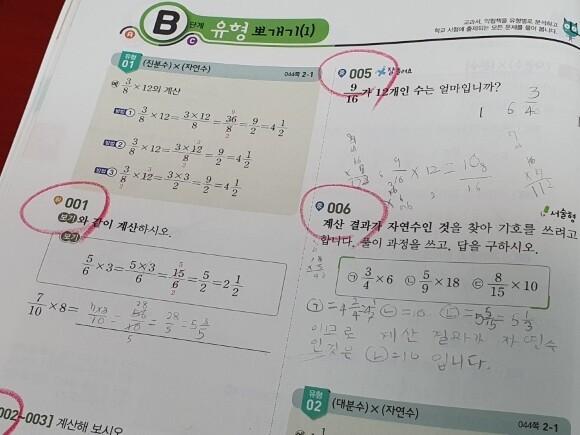 B 단계 유형 뽀개기(1)
교과서, 익힘책을 유형별로 분석하고
학교 시험에 출제되는 모든 문제를 풀어 봅니다.
유형 01 (진분수)×(자연수) 044쪽 2-1
예 3/8×12의 계산
방법 1 3/8×12=3×12/8=36/8=9/2=4 1/2
방법 2 3/8×12=3×12/8=9/2=4 1/2
방법 3 3/8×12=3×3/2=9/2=4 1/2
001
보기와 같이 계산하시오.
보기
5/6×3=5×3/6=15/6=5/2=2 1/2
7/10×8=7×8/10=56/10=28/5=5 3/5
002~003] 계산해 보시오
005
9/16가 12개인 수는 얼마입니까?
1 6 3/4
9/16×12=108/16
006 서술형
계산 결과가 자연수인 것을 찾아 기호를 쓰려고
합니다. 풀이 과정을 쓰고, 답을 구하시오.
㉠ 3/4×6 ㉡ 5/9×18 ㉢ 8/15×10
이므로 계산 결과가 자연수
인것은 ㉡=10 입니다.
유형 02 (대분수)×(자연수)
044쪽 2-1